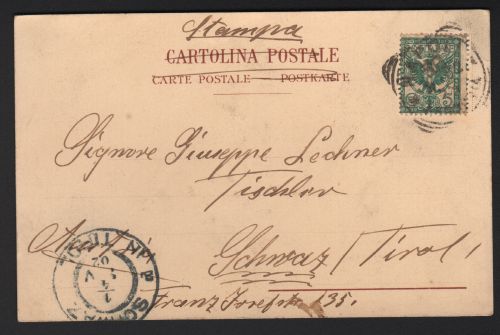 Stampa
CARTOLINA POSTALE
CARTE POSTALE POSTKARTE
Signore Giuseppe Lechner
Tischler
Schwaz / Tirol /
Franz Josefstr. 135.